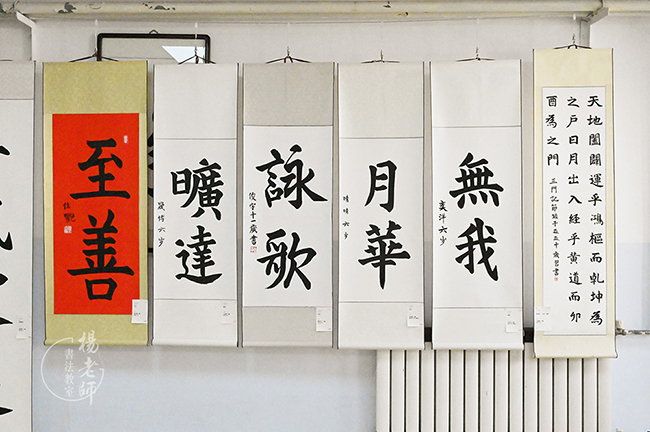 天地闔闢運乎鴻樞而乾坤為
之戶日月出入經乎黃道而卯
酉為之門
三門記節錄
無我
奕洋六岁
月華
六岁
詠歌
俊宇十一歲書
曠達
六岁
至善
楊老師
書法教室